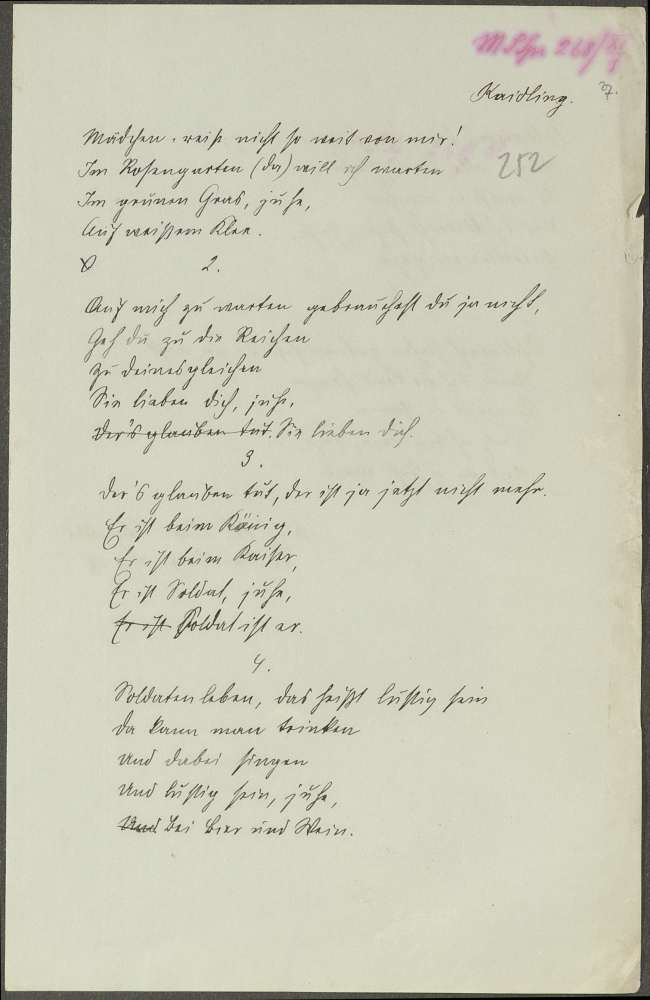 M Schr 268/XI
5
Kaidling. 37.
252
Mädchen, reis nicht so weit von mir!
Im Rosengarten (da) will ich warten
Im grünen Gras, juhe,
Auf weißem Klee.
2.
Auf mich zu warten gebrauchest du ja nicht,
Geh du zu die Reichen
Zu deinesgleichen
Sie lieben dich, juhe,
Der's glauben tut. Sie lieben dich.
3.
Der's glauben tut, der ist ja jetzt nicht mehr.
Er ist beim König,
Er ist beim Kaiser,
Er ist Soldat, juhe,
Er ist Soldat ist er.
4.
Soldatenleben, das heißt lustig sein
Da kann man trinken
Und dabei singen
Und lustig sein, juhe,
Und Bei Bier und Wein.